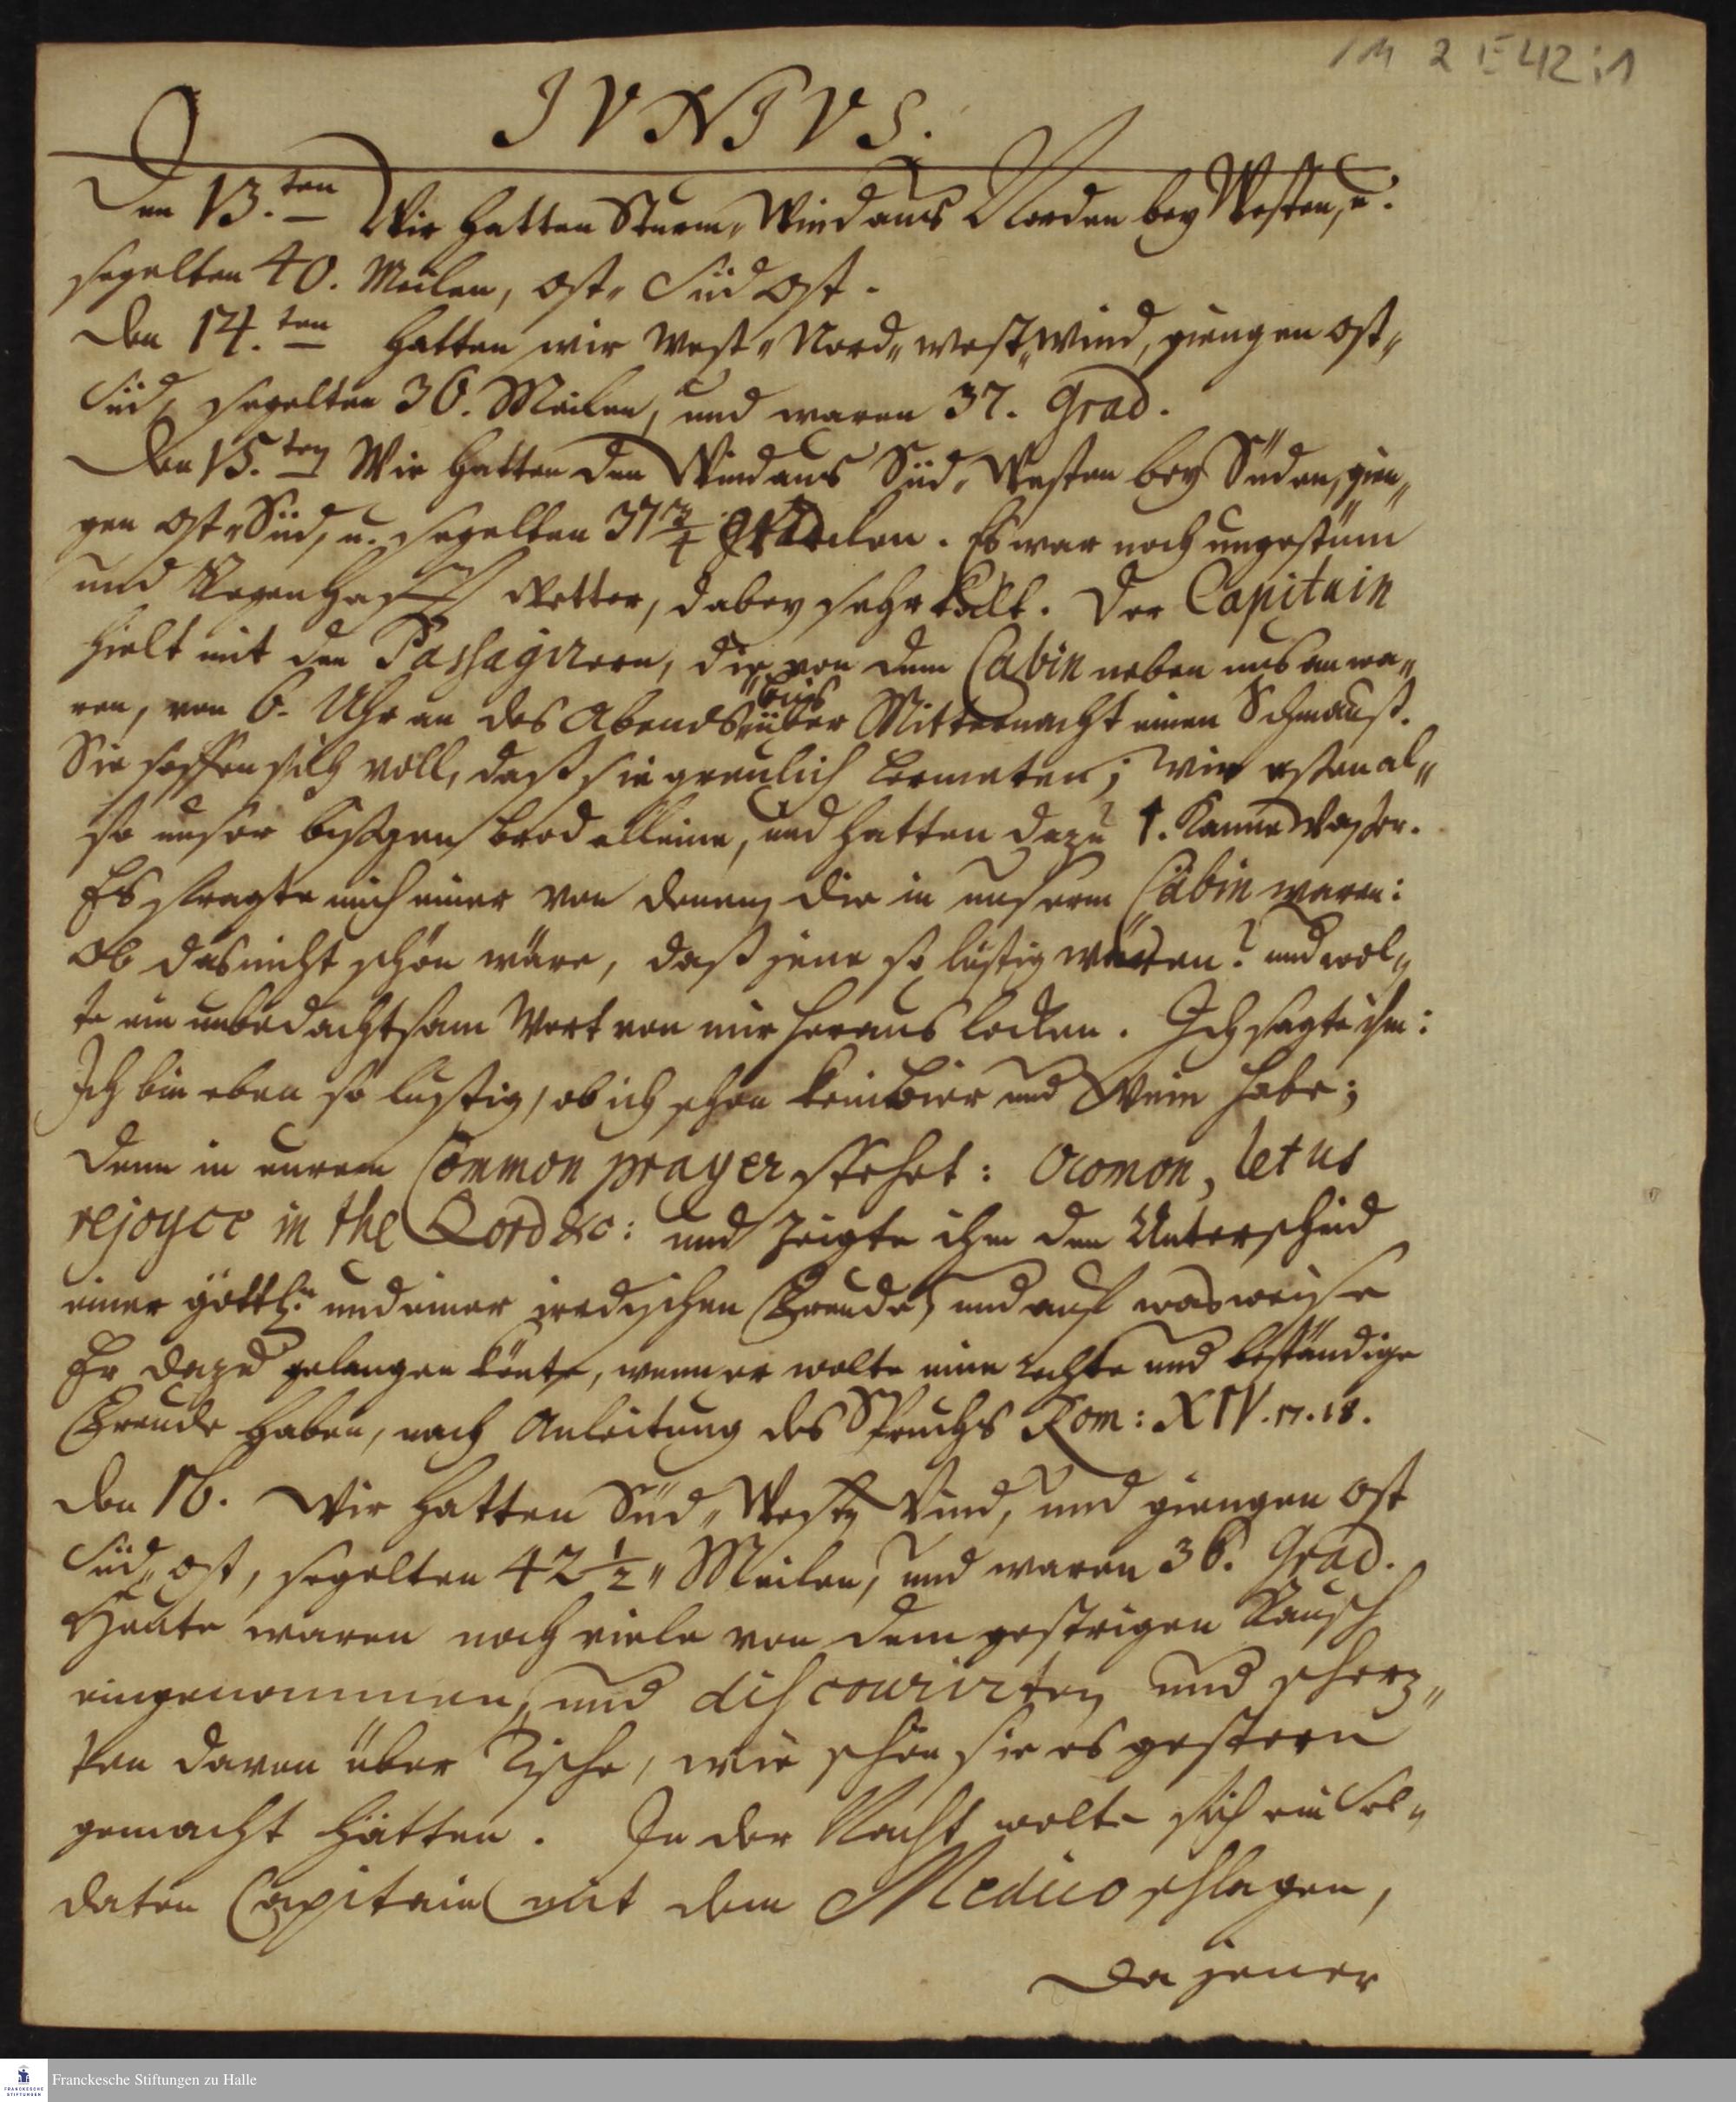 1M 2 E 42:1
IVNIVS.
Den 13.ten Wir hatten Sturm„ Wind aus Norden bey Westen, u.
segelten 40. Meilen, Ost„ Süd Ost.
Den 14.ten hatten wir West„ Nord„ West„ Wind, giengen Ost„
Süd, segelten 36. Meilen, und waren 37. Grad.
Den 15.ten Wir hatten den Wind aus Süd, Westen bey Süden, gien„
gen Ost„ Süd, u. segelten 37 3/4 Meilen. Es war noch ungestüm
und Regenhafft Wetter, dabey sehr kalt. Der Capitain
hielt mit den Passagirern, die von dem Cabin neben uns an wa„
ren, von 6. Uhr an des Abends, biß über Mitternacht einen Schmauß.
Sie soffen sich voll, daß sie greulich lermeten; wir aßen al„
so unser bißgen Brod alleine, und hatten dazu 1. Kanne Waßer.
Es fragte mich einer von denen, die in unserm Cabin waren:
Ob das nicht schön wäre, daß jene so lustig wären? und wol„
te ein unbedachtsam Wort von mir heraus locken. Ich sagte ihm:
Ich bin eben so lustig, ob ich schon kein Bier und Wein habe;
denn in eurem Common prayer stehet: O comon, let us
rejoyce in the Lord &c: und zeigte ihm den Unterscheid
einer göttl.n und einer irrdischen Freude, und auf was weise
Er dazu gelangen könte, wenn er wolte eine rechte und beständige
Freude haben, nach Anleitung des Spruchs Rom: XIV. 17. 18.
Den 16. Wir hatten Süd„ West, Wind, und giengen Ost
Süd„ Ost, segelten 42 1/2„ Meilen, und waren 36. Grad.
Heute waren noch viele von dem gestrigen Rausch
eingenommen, und discourirten und scherz„
ten davon über Tische, wie schön sie es gestern
gemacht hätten. In der Nacht wolte sich ein Sol„
daten Capitain mit dem Medico schlagen,
da jener
FRANCKESCHE
STIFTUNGEN
Franckesche Stiftungen zu Halle